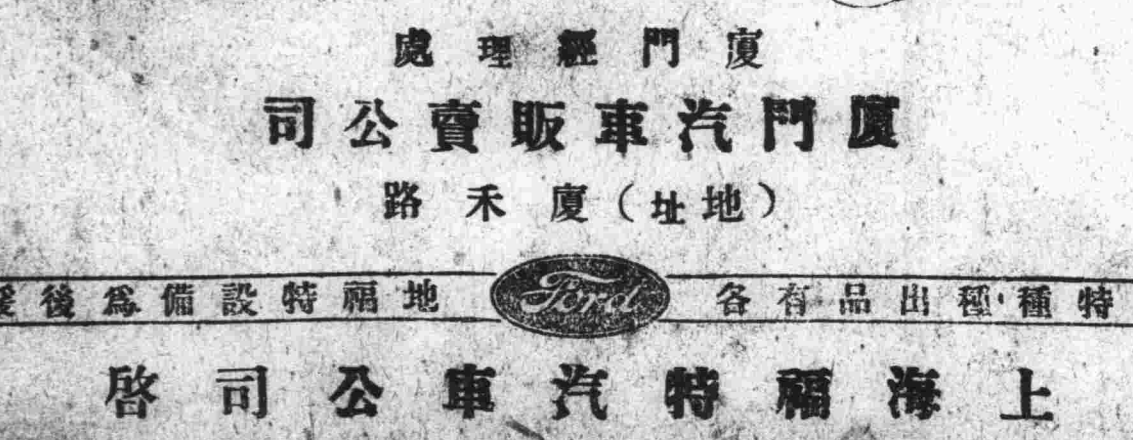 廈門經理處
廈門汽車販賣公司
(地址)廈禾路
特種種出品有各 Ford 地福特設備爲後援
上海福特汽車公司啓